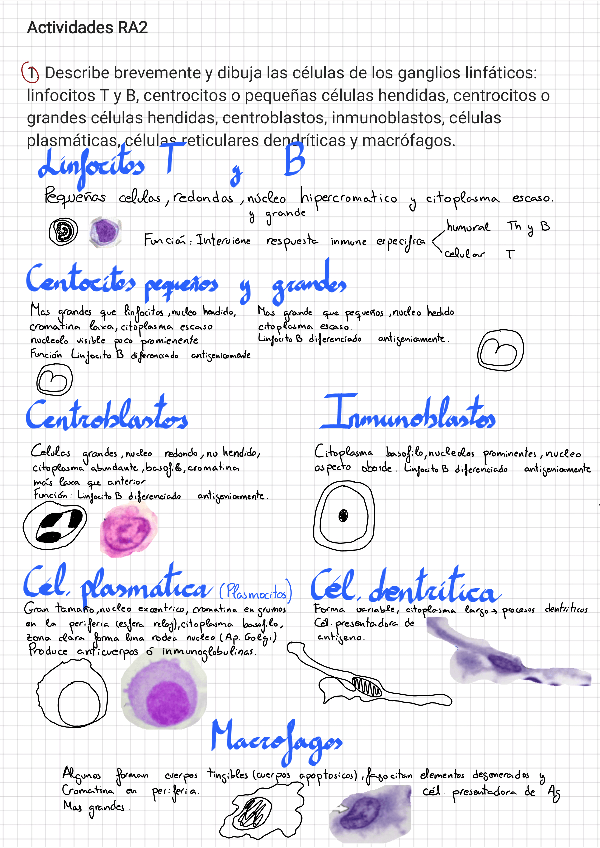 Actividades RA2
1) Describe brevemente y dibuja las células de los ganglios linfáticos:
linfocitos T y B, centrocitos o pequeñas células hendidas, centrocitos o
grandes células hendidas, centroblastos, inmunoblastos, células
plasmáticas, células reticulares dendríticas y macrófagos.
Linfocitos T y B
Pequeñas celulas, redondas, núcleo hipercromatico y citoplasma escaso.
y grande
Función: Interviene respuesta inmune especifica
humoral Th y B
celular T
Centocitos pequeños y grandes
Mas grandes que linfocitos, nucleo hendido,
cromatina laxa, citoplasma escaso
nucleolo visible poco prominente
Función Linfocito B diferenciado antigenicamente
Mas grande que pequeños, nucleo hedido
citoplasma escaso.
Linfocito B diferenciado antigenicamente.
Centroblastos
Celulas grandes, nucleo redondo, no hendido,
citoplasma abundante, basofilo, cromatina
más laxa que anterior
Función: Linfocito B diferenciado antigenicamente.
Inmunoblastos
Citoplasma basofilo, nucleolos prominentes, nucleo
aspecto oboide. Linfocito B diferenciado antigenicamente
Cél. plasmática (Plasmocitos)
Gran tamaño, nucleo excentrico, cromatina en grumos
en la periferia (esfera reloj), citoplasma basofilo,
zona clara forma luna rodea nucleo (Ap. Golgi)
Produce anticuerpos ó inmunoglobulinas.
Cél. dentrítica
Forma variable, citoplasma largo → procesos dentriticos
Cél. presentadora de
antígeno.
Macrofagos
Algunos forman cuerpos tingibles (cuerpos apoptosicos), fagocitan elementos degenerados y
Cromatina en periferia.
cél presentadora de Ag
Mas grandes.